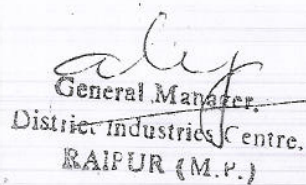 General Manager,
District Industries Centre,
RAIPUR (M.P.)